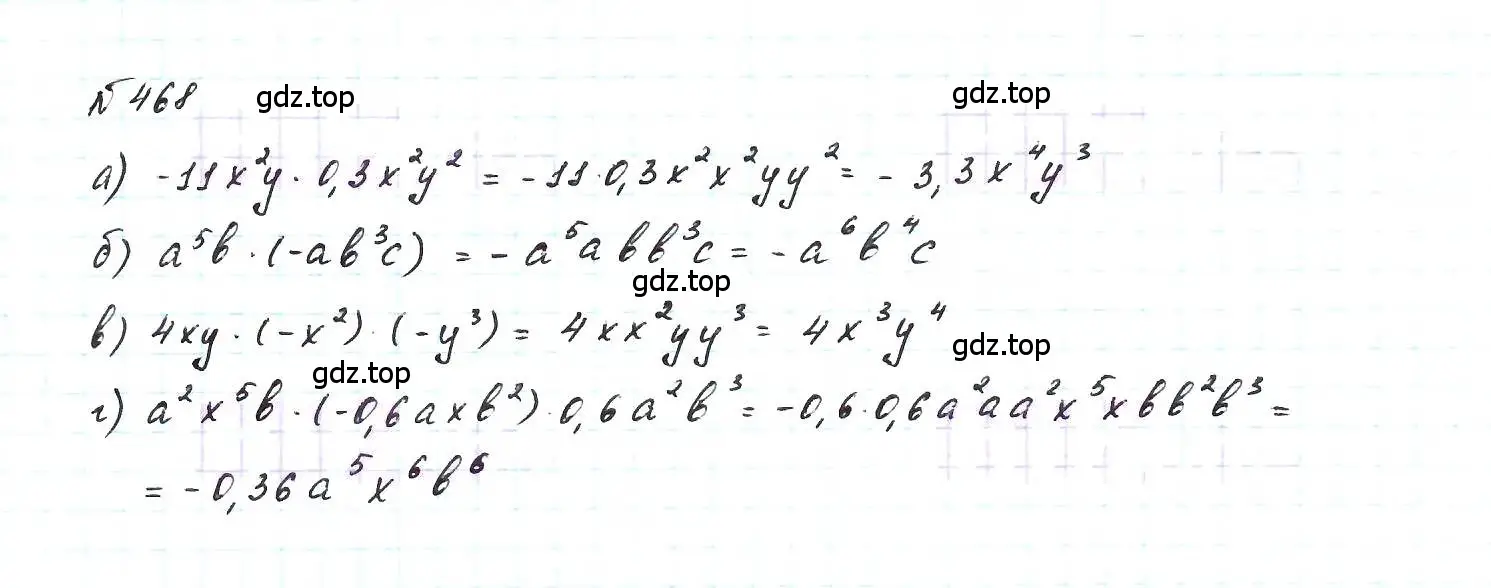 № 468
gdz.top gdz.top
а) -11x²y · 0,3x²y² = -11·0,3x²x²yy² = -3,3x⁴y³
б) a⁵b · (-ab³c) = -a⁵abb³c = -a⁶b⁴c
gdz.top
в) 4xy · (-x²) · (-y³) = 4xx²yy³ = 4x³y⁴
gdz.top gdz.top
г) a²x⁵b · (-0,6axb²) · 0,6a²b³ = -0,6·0,6a²aa²x⁵xbb²b³ =
= -0,36a⁵x⁶b⁶